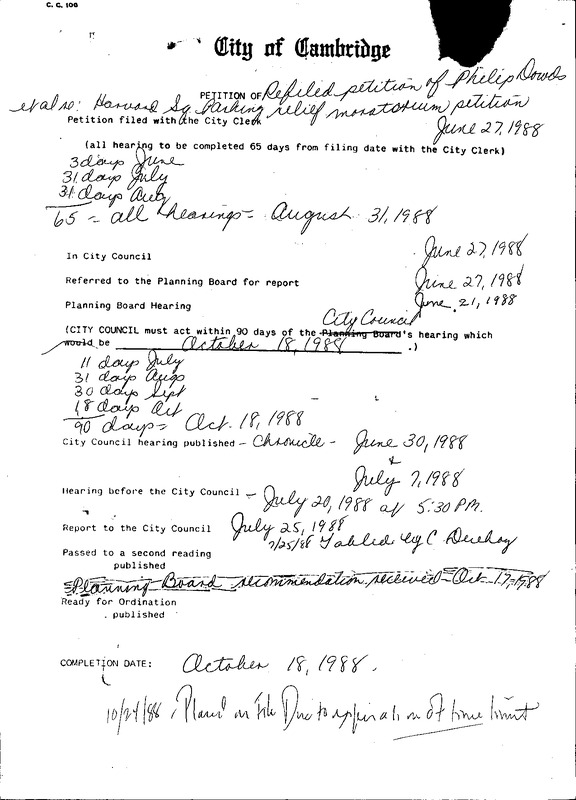 C. C. 100
City of Cambridge
PETITION OF Refiled petition of Philip Dowds
et al re: Harvard Sq. Parking relief moratorium petition
Petition filed with the City Clerk June 27, 1988
(all hearing to be completed 65 days from filing date with the City Clerk)
3 days June
31 days July
31 days Aug
65 - all hearings - August 31, 1988
In City Council June 27, 1988
Referred to the Planning Board for report June 27, 1988
Planning Board Hearing June 21, 1988
City Council
(CITY COUNCIL must act within 90 days of the Planning Board's hearing which
would be October 18, 1988 .)
11 days July
31 days Augs
30 days Sept
18 days Oct
90 days = Oct. 18, 1988
City Council hearing published - Chronicle - June 30, 1988
&
July 7, 1988
Hearing before the City Council - July 20, 1988 at 5:30 P.M.
Report to the City Council July 25, 1988
7/25/88 Tabled by C
Passed to a second reading
published
Planning Board recommendation received - Oct 17, 1988
Ready for Ordination
. published
COMPLETION DATE: October 18, 1988.
10/24/88 Placed on File Due to expiration of time limit